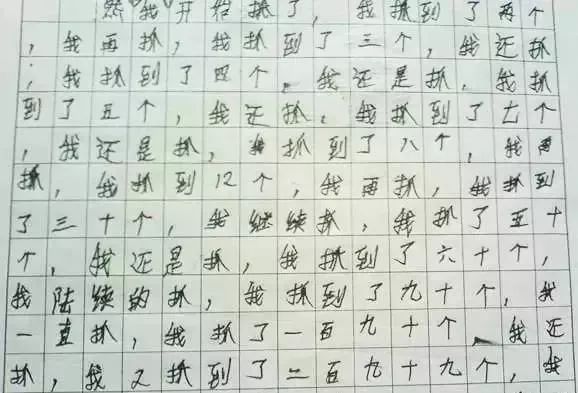 然我开始抓了，我抓到了两个
，我再抓，我抓到了三个，我还抓
，我抓到了四个，我还是抓，我抓
到了五个，我还抓，我抓到了七个
，我还是抓，我抓到了八个，我再
抓，我抓到12个，我再抓，我抓到
了三十个，我继续抓，我抓了五十
个，我还是抓，我抓到了六十个，
我陆续的抓，我抓到了九十个，我
一直抓，我抓了一百九十个，我还
抓，我又抓到了二百九十九个，我